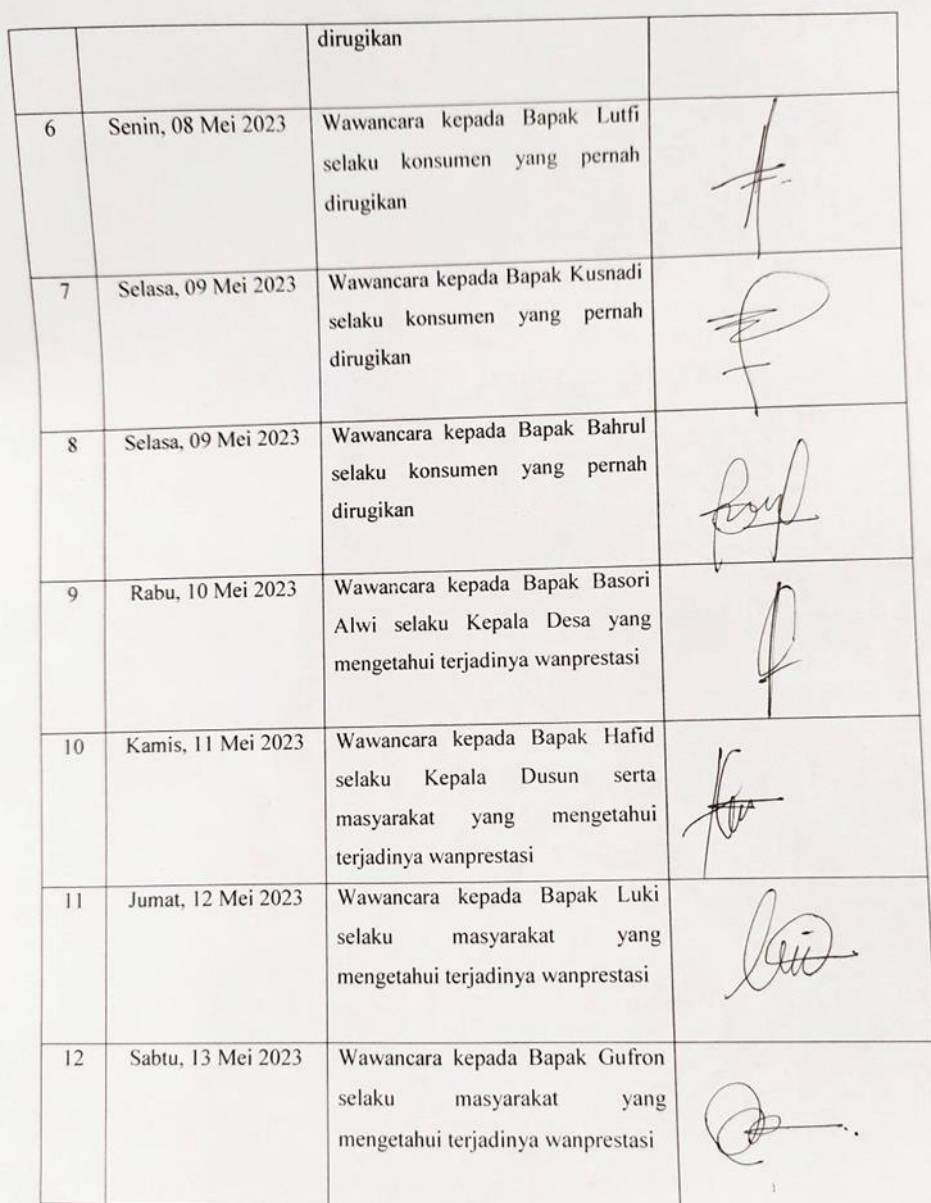 dirugikan
6 Senin, 08 Mei 2023 Wawancara kepada Bapak Lutfi
selaku konsumen yang pernah
dirugikan
7 Selasa, 09 Mei 2023 Wawancara kepada Bapak Kusnadi
selaku konsumen yang pernah
dirugikan
8 Selasa, 09 Mei 2023 Wawancara kepada Bapak Bahrul
selaku konsumen yang pernah
dirugikan
9 Rabu, 10 Mei 2023 Wawancara kepada Bapak Basori
Alwi selaku Kepala Desa yang
mengetahui terjadinya wanprestasi
10 Kamis, 11 Mei 2023 Wawancara kepada Bapak Hafid
selaku Kepala Dusun serta
masyarakat yang mengetahui
terjadinya wanprestasi
11 Jumat, 12 Mei 2023 Wawancara kepada Bapak Luki
selaku masyarakat yang
mengetahui terjadinya wanprestasi
12 Sabtu, 13 Mei 2023 Wawancara kepada Bapak Gufron
selaku masyarakat yang
mengetahui terjadinya wanprestasi